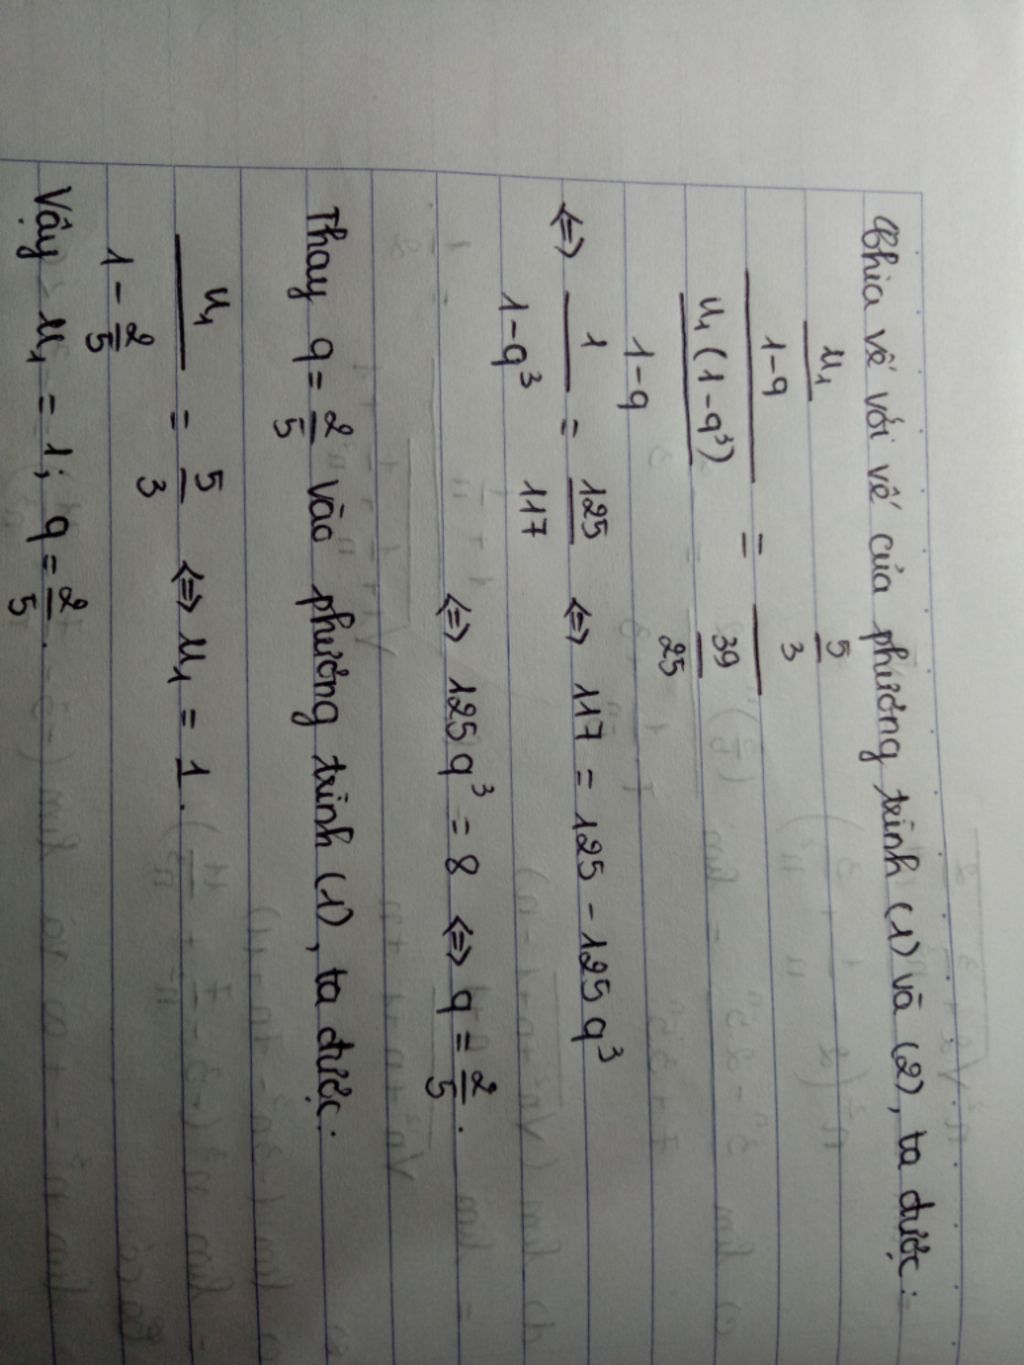 Chia vế với vế của phương trình (1) và (2), ta được:
u₁
1-q
u₁(1-q³)
1-q
=
5
3
39
25
⇔ 1/(1-q³) = 125/117 ⇔ 117 = 125 - 125q³
⇔ 125q³ = 8 ⇔ q = 2/5.
Thay q = 2/5 vào phương trình (1), ta được:
u₁/(1 - 2/5) = 5/3 ⇔ u₁ = 1.
Vậy u₁ = 1; q = 2/5.